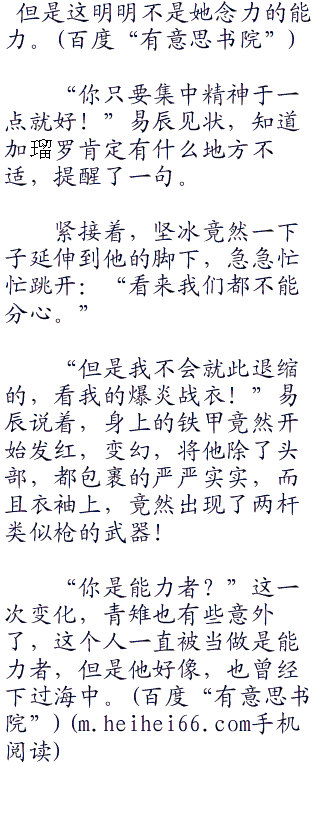 但是这明明不是她念力的能
力。(百度“有意思书院”)
“你只要集中精神于一
点就好！”易辰见状，知道
加瑠罗肯定有什么地方不
适，提醒了一句。
紧接着，坚冰竟然一下
子延伸到他的脚下，急急忙
忙跳开：“看来我们都不能
分心。”
“但是我不会就此退缩
的，看我的爆炎战衣！”易
辰说着，身上的铁甲竟然开
始发红，变幻，将他除了头
部，都包裹的严严实实，而
且衣袖上，竟然出现了两杆
类似枪的武器！
“你是能力者？”这一
次变化，青雉也有些意外
了，这个人一直被当做是能
力者，但是他好像，也曾经
下过海中。(百度“有意思书
院”)(m.heihei66.com手机
阅读)